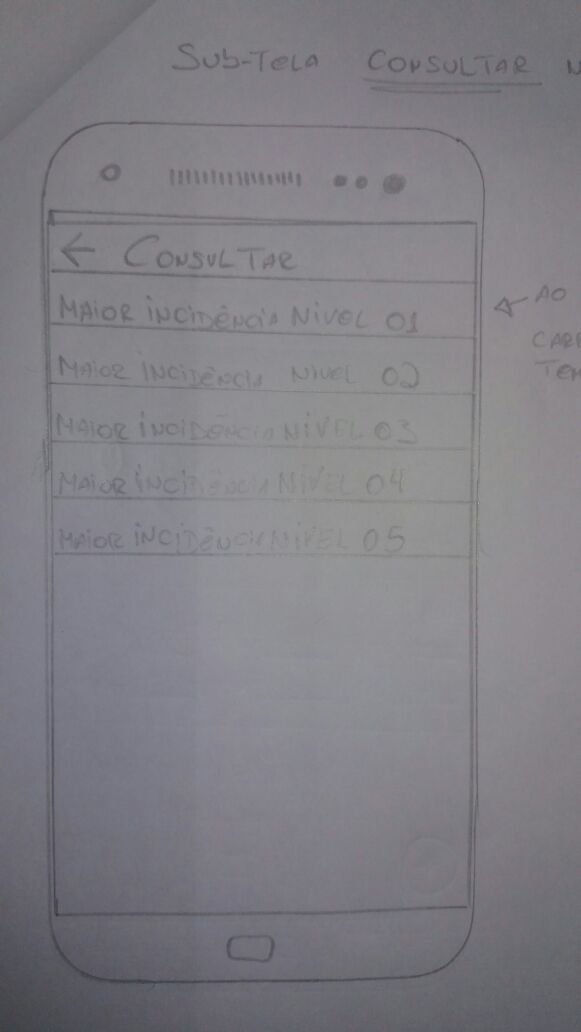 SUB-TELA CONSULTAR
← CONSULTAR
MAIOR INCIDÊNCIA NIVEL 01
MAIOR INCIDÊNCIA NIVEL 02
MAIOR INCIDÊNCIA NIVEL 03
MAIOR INCIDÊNCIA NIVEL 04
MAIOR INCIDÊNCIA NIVEL 05
AO